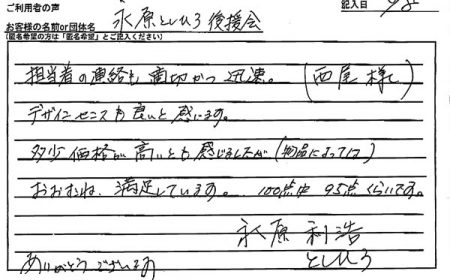 ご利用者の声
記入日
お客様の名前or団体名 永原としひろ後援会
(匿名希望の方は「匿名希望」とご記入ください)
担当者の連絡も適切かつ迅速。(西尾様)
デザインセンスも良いと感います。
多少価格が高いとも感じましたが(物品によっては)
おおむね、満足しています。100点中95点くらいです。
永原利浩
ありがとうございます としひろ